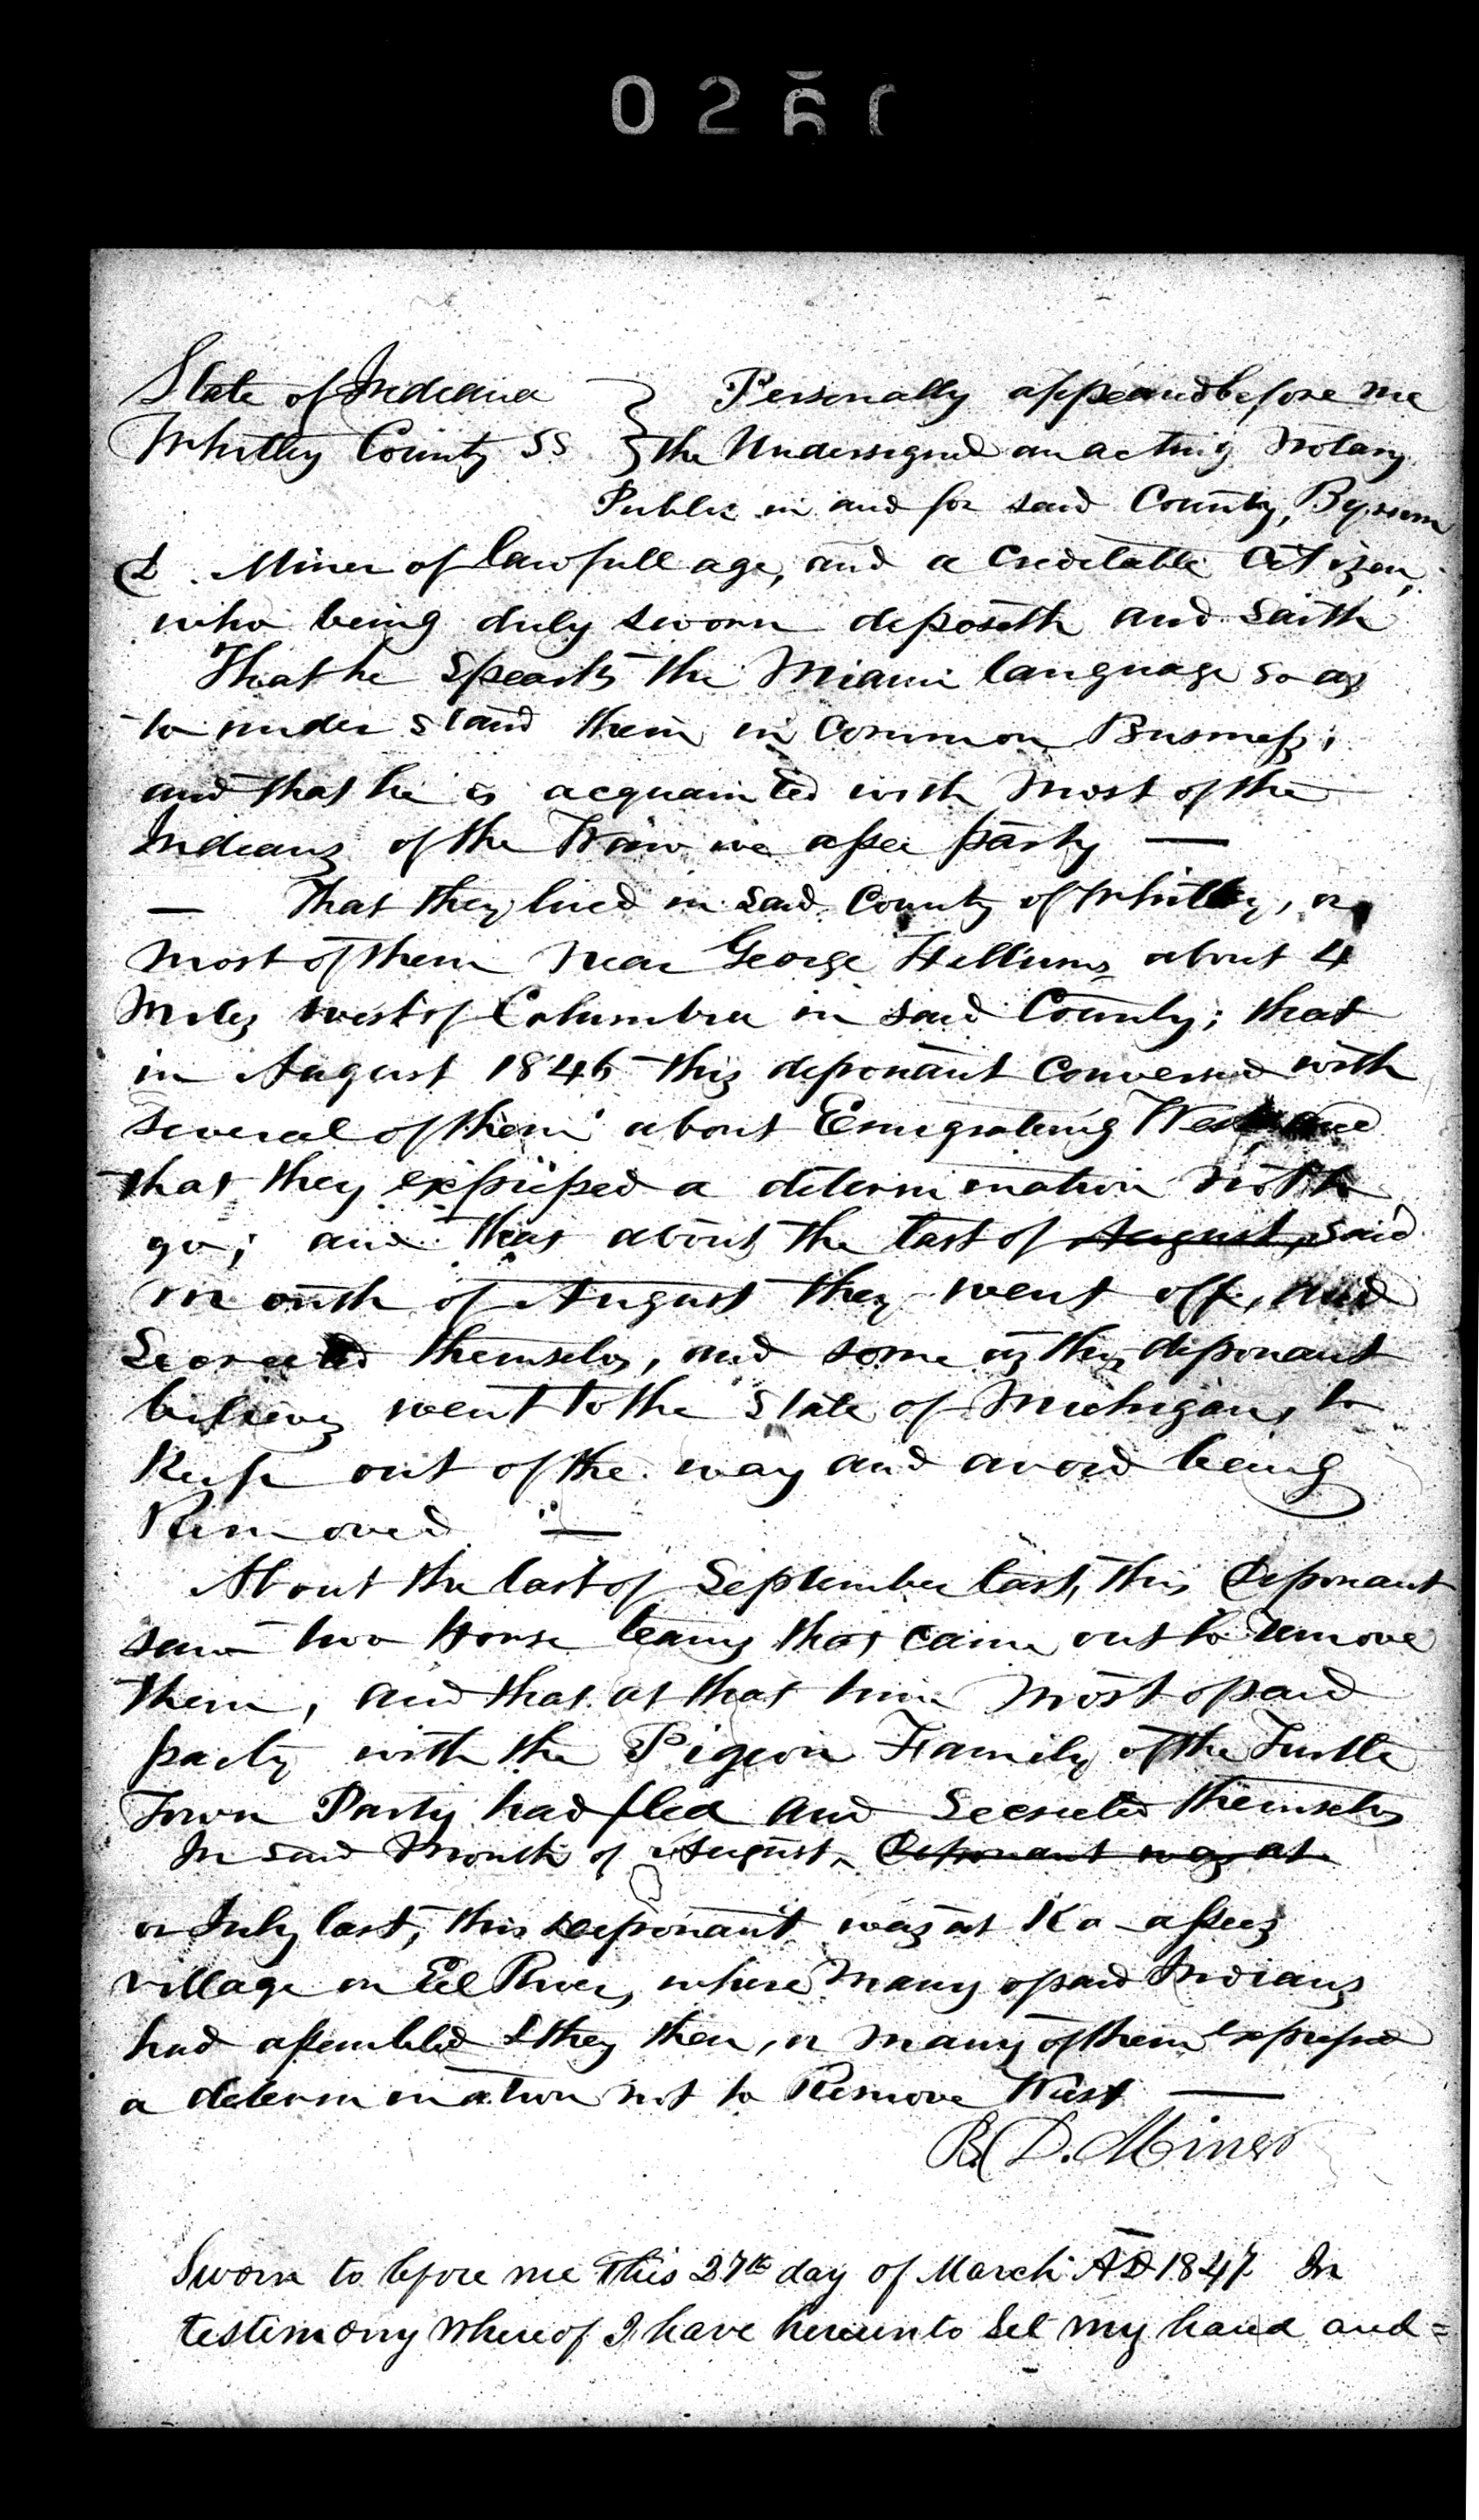 0260
State of Indiana } Personally appeared before me
Whitley County SS } the Undersigned an acting Notary
Public in and for said County, Byrum
D. Miner of lawfull age, and a Creditable Citizen,
who being duly sworn deposeth and saith
That he speaks the Miami language so as
to under stand them in common Business;
and that he is acquainted with most of the
Indians of the party —
— That they lived in said County of Whitley, or
most of them near George Hellums about 4
Miles west of Columbia in said County; that
in August 1846 this deponant conversed with
several of them about Emigrating West and
that they expressed a determination not to
go; and that about the last of August, said
month of August they went off, and
Secreeted themselves, and some as this deponant
believes went to the State of Michigan, to
Keep out of the way and avoid being
Removed —
About the last of September last, this Deponant
saw two Horse teams that came out to remove
them, and that at that time most of said
party with the Pigeon Family of the Turtle
Town Party had fled and Secreeted themselves
In said Month of August, Deponant was at
or July last, this deponant was at Ko-assees
village on Eel River, where many of said Indians
had assembled & they then, or many of them expressed
a determination not to Remove West —
B. D. Miner
Sworn to before me This 27th day of March AD 1847. In
testimony whereof I have hereunto Set my hand and =